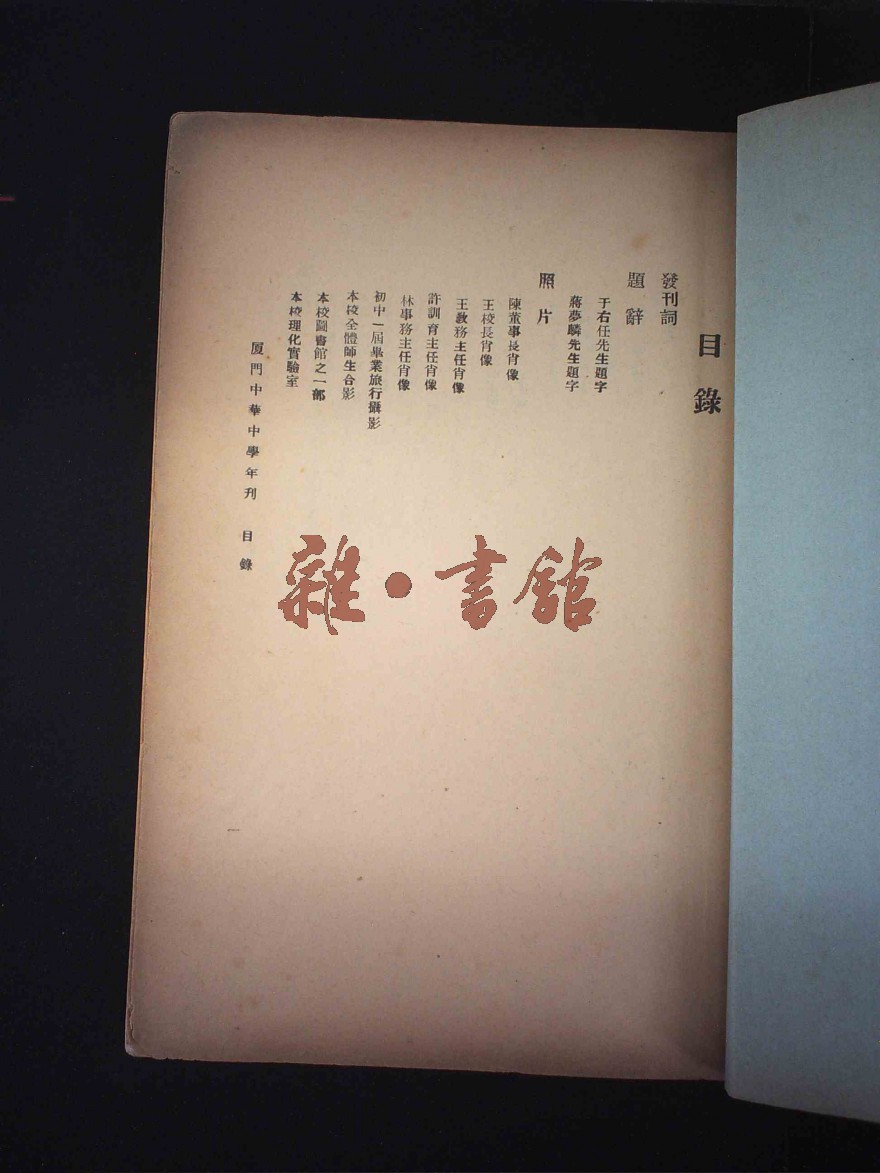 目錄
發刊詞
題辭
于右任先生題字
蔣夢麟先生題字
照片
陳董事長肖像
王校長肖像
王教務主任肖像
許訓育主任肖像
林事務主任肖像
初中一屆畢業旅行攝影
本校全體師生合影
本校圖書館之一部
本校理化實驗室
厦門中華中學年刊 目錄
雜·書館